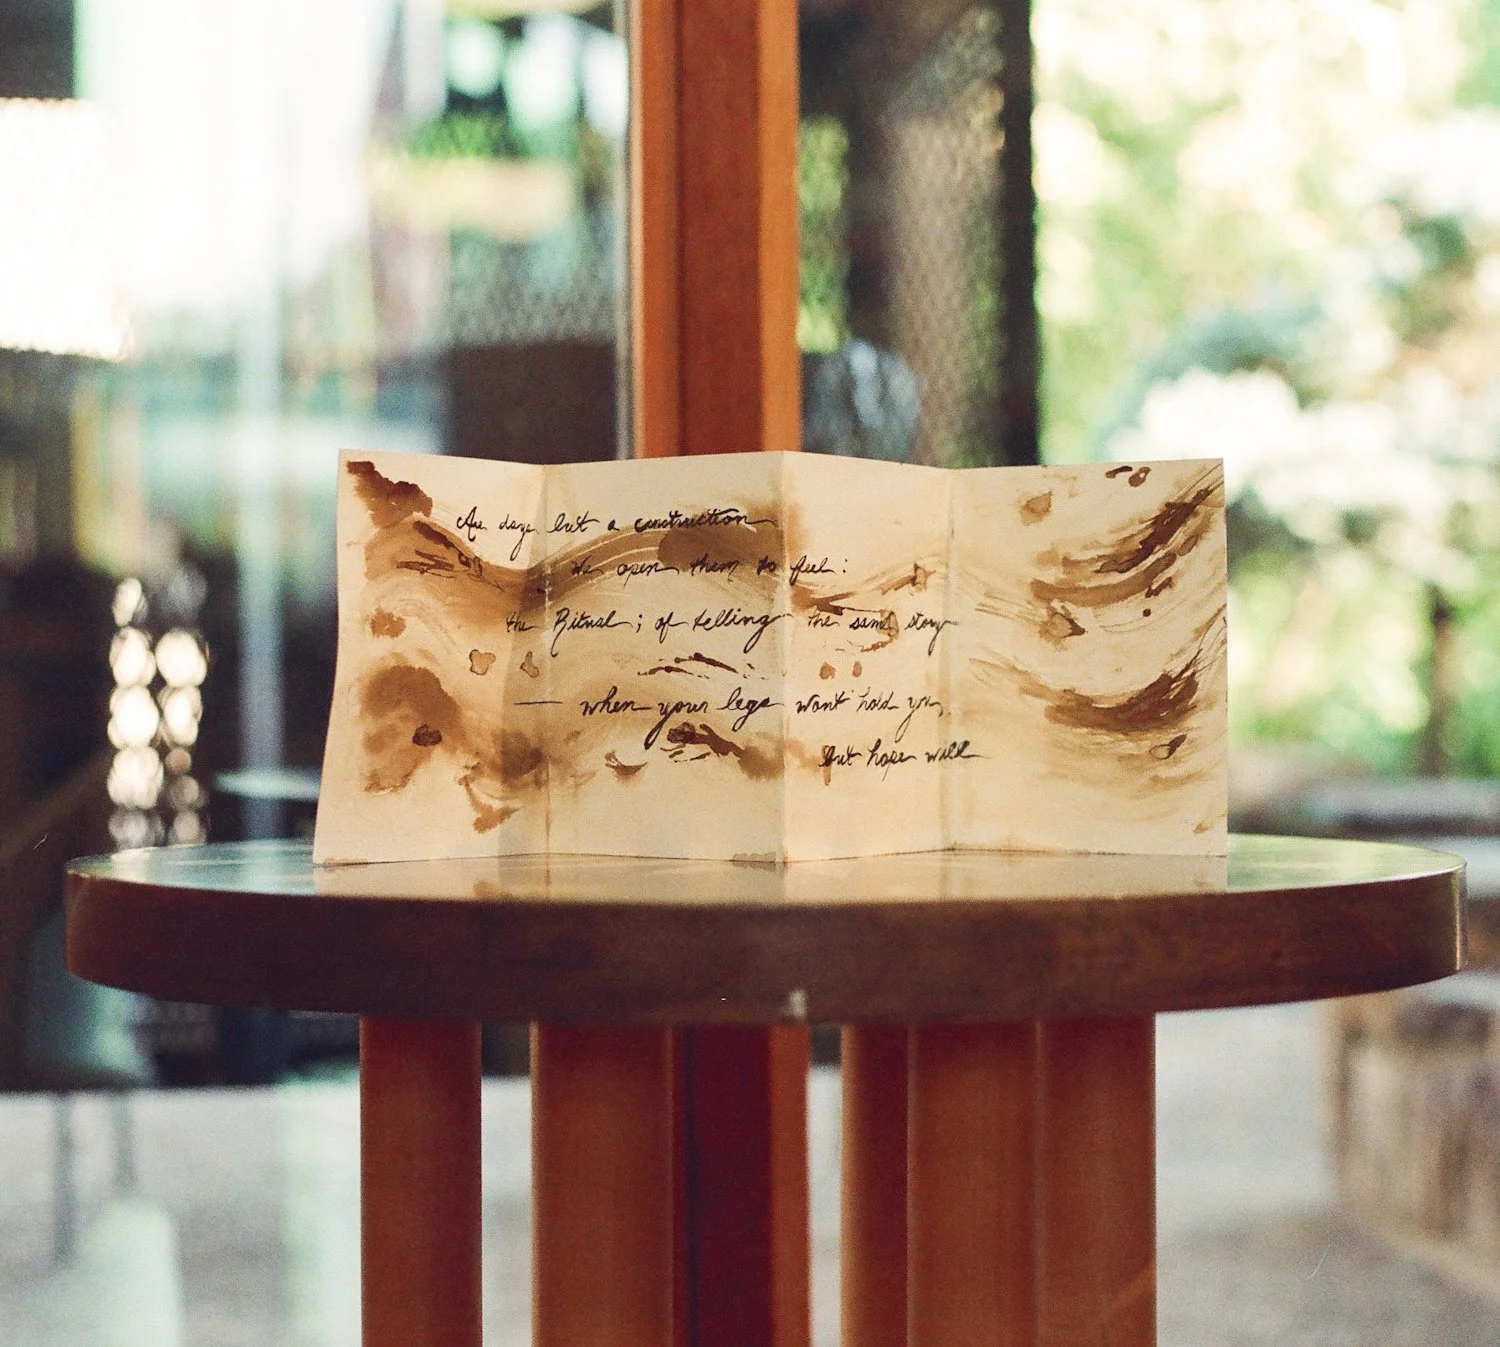 Are days but a construction
We open them to feel:
the Ritual; of telling the same story
— when your legs wont hold you,
but hope will